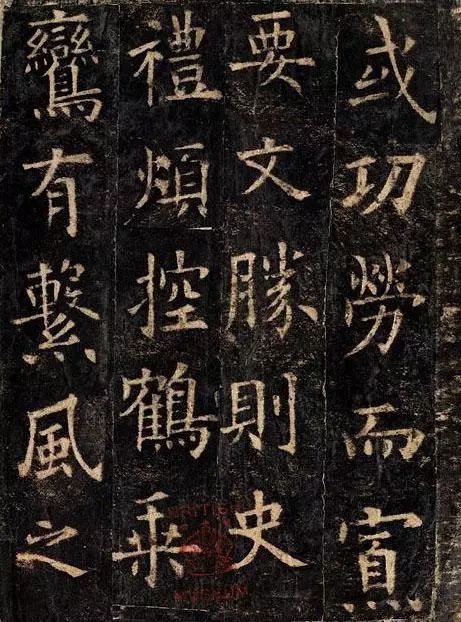 或功勞而寡
要文勝則史
禮煩控鶴乘
鸞有繫風之
BRITISH
MUSEUM